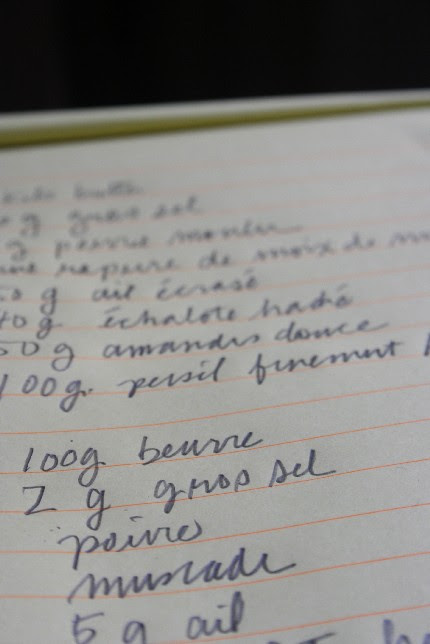 g gros sel
g poivre moulu
rapure de noix de
g ail écrasé
40g échalote haché
50 g amandes douce
100g. persil finement
100g beurre
2 g gros sel
poivre
muscade
5 g ail